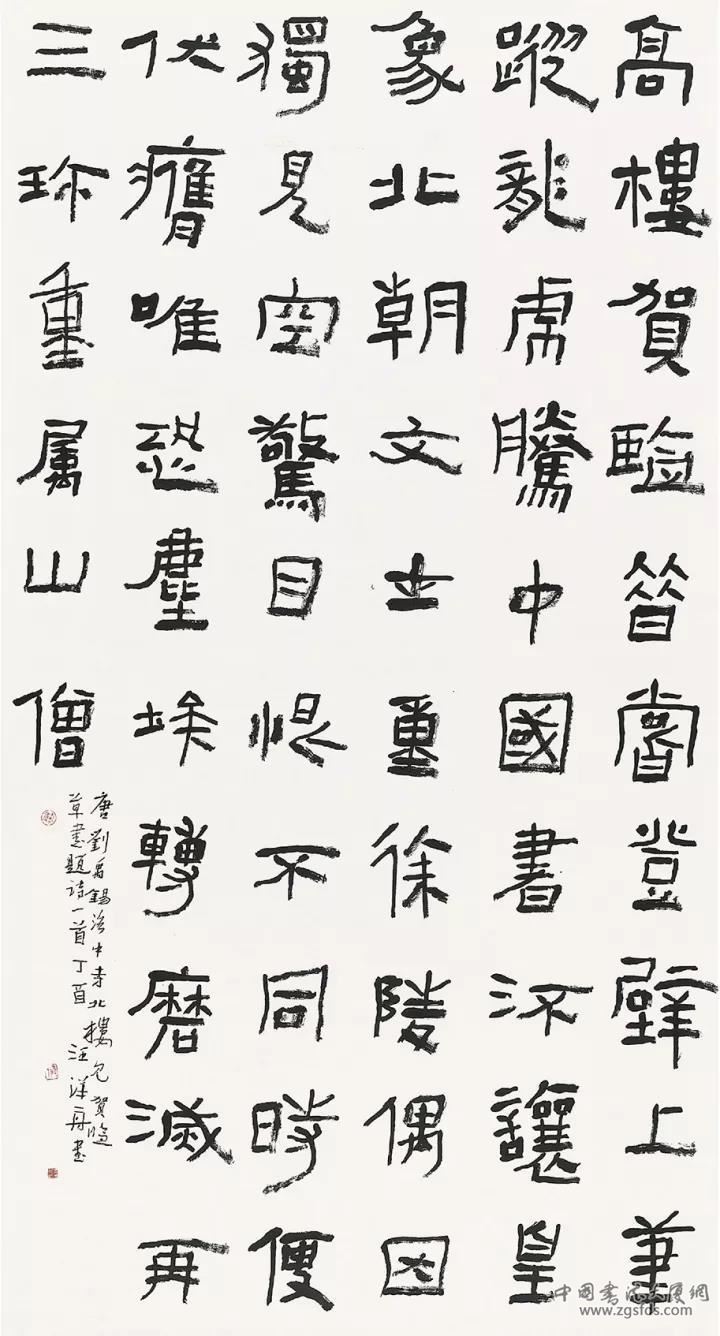 高樓賀監昔嘗登壁上筆
蹤龍虎騰中國書流讓皇
象北朝文士重徐陵偶因
獨見空驚目恨不同時便
伏膺唯恐塵埃轉磨滅再
三珍重屬山僧
唐劉禹錫洛中寺北樓見賀監
草書題詩一首丁酉汪洋舟書
中国书法大厦網
www.zgsfds.com